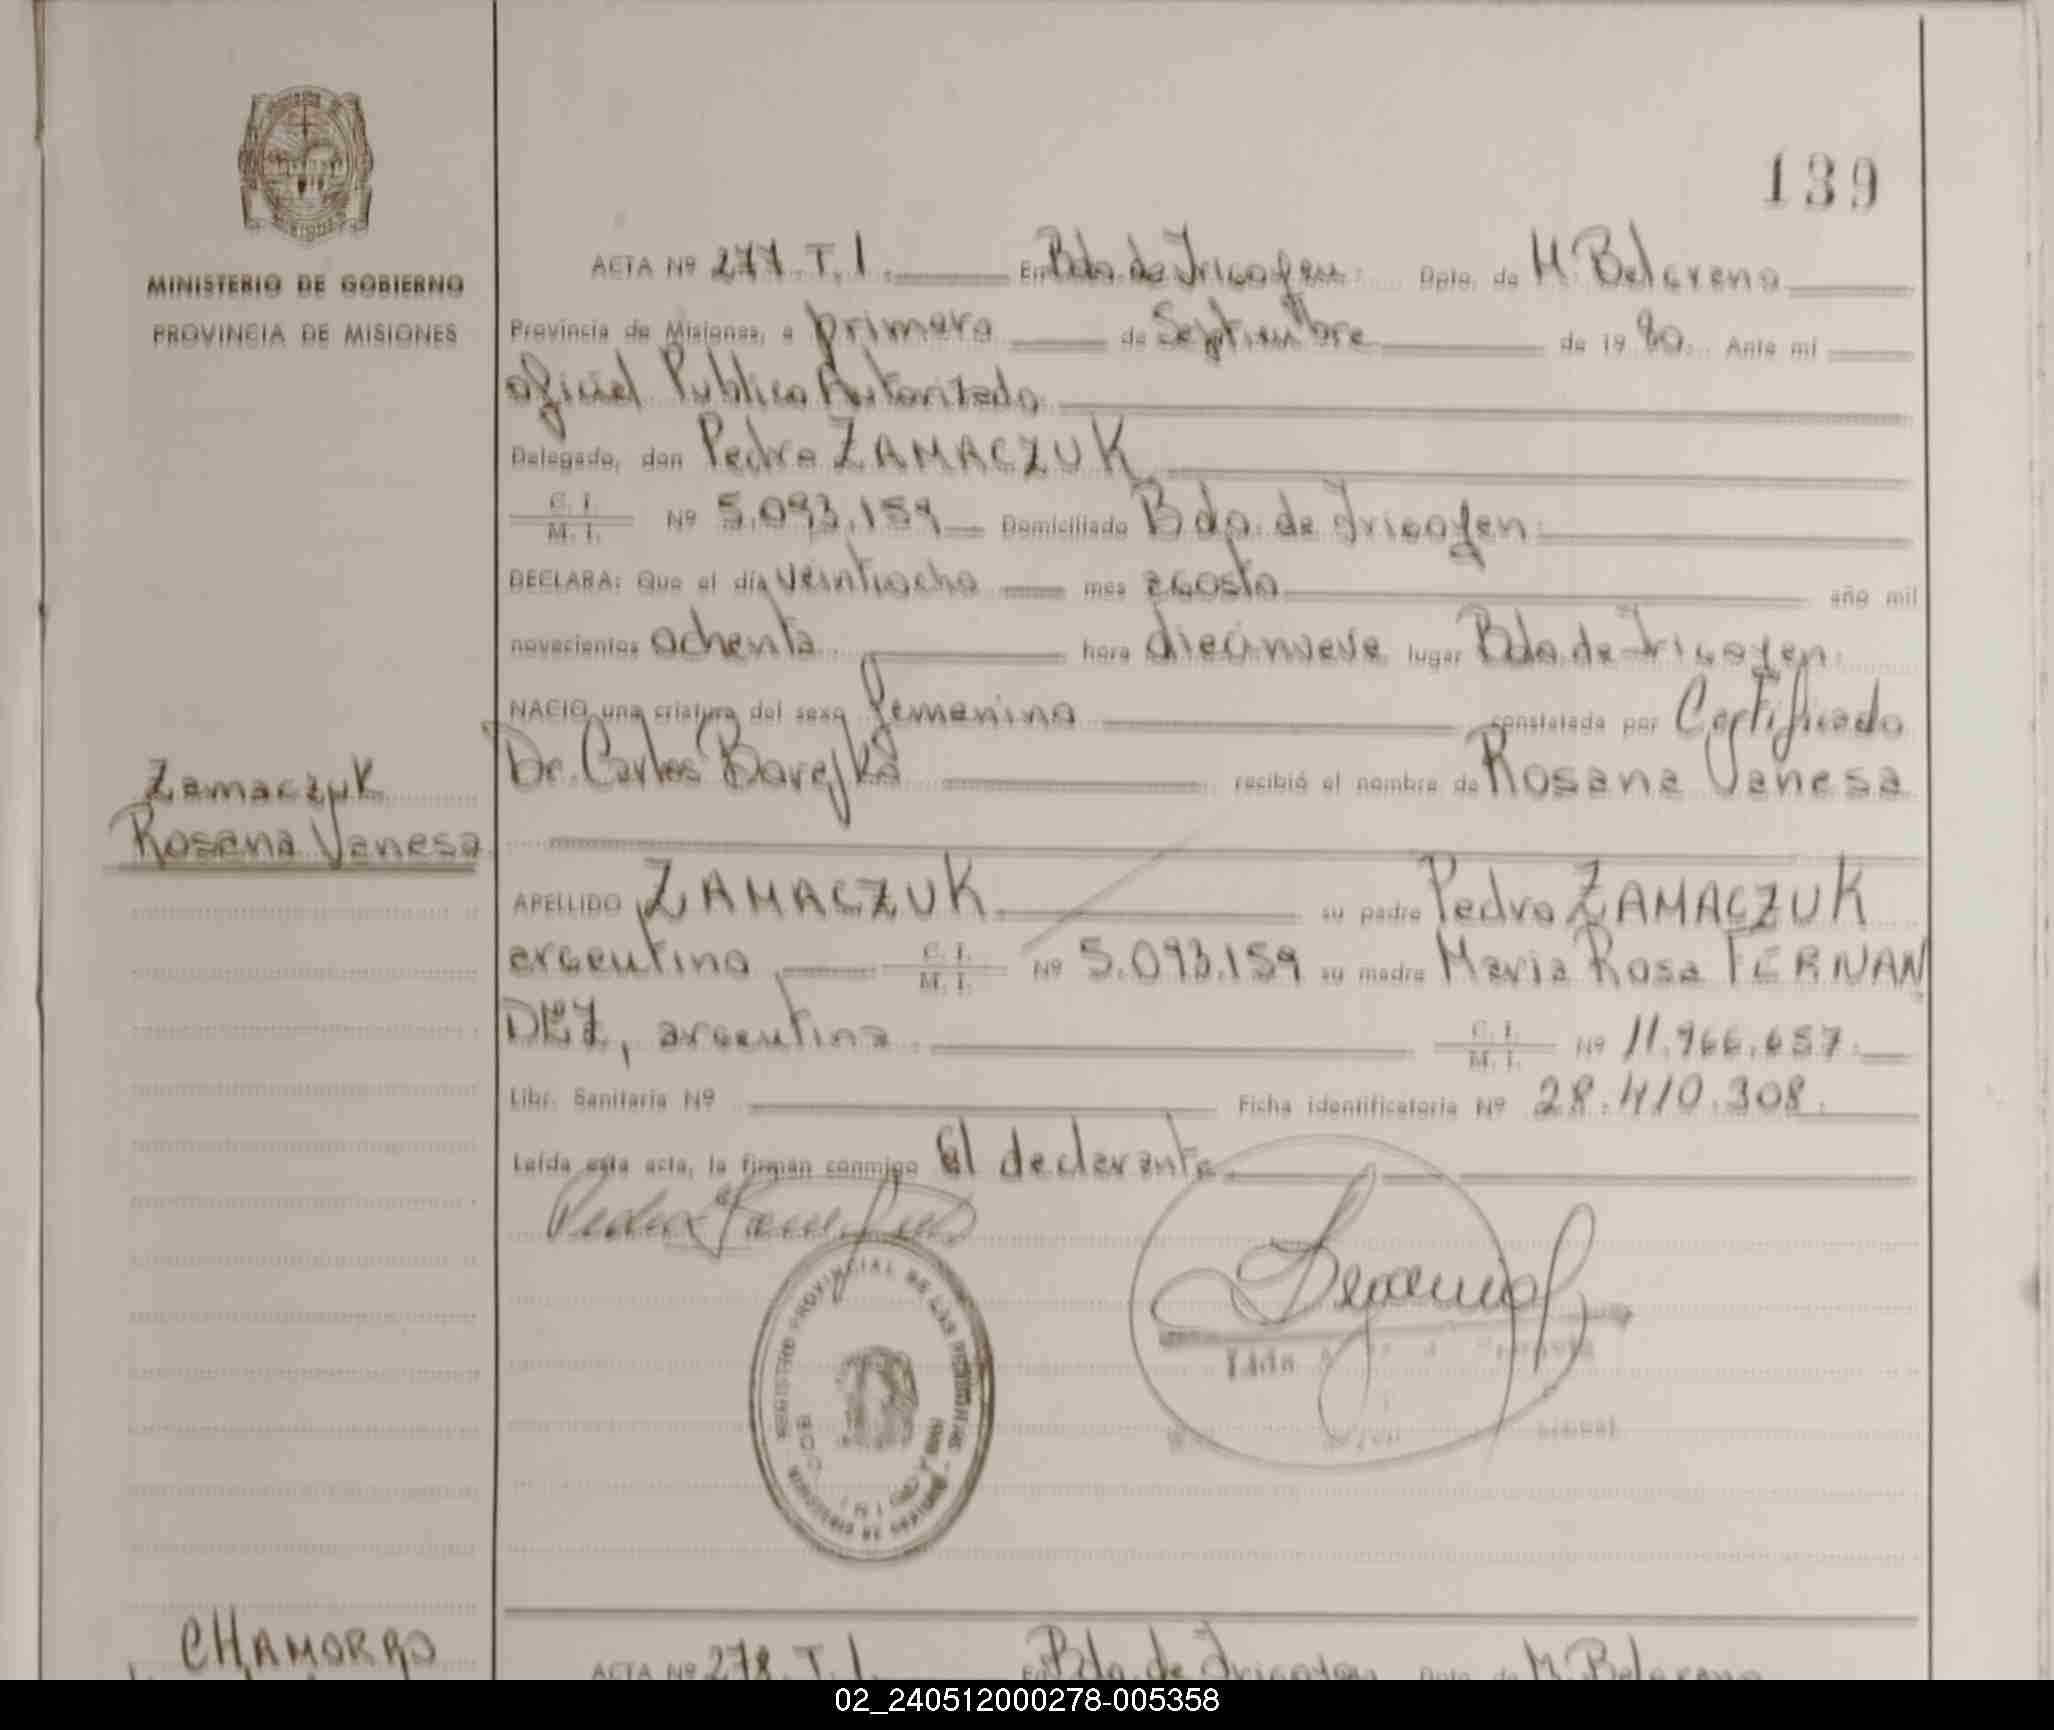 139
MINISTERIO DE GOBIERNO
PROVINCIA DE MISIONES
ACTA Nº 277. T. I. En Bdo. de Irigoyen. Dpto. de M. Belgrano
Provincia de Misiones, a primero de Septiembre de 19 80. Ante mí
oficial Publico Autorizado
Delegado, don Pedro ZAMACZUK
C. I.
M. I. Nº 5.093.159 Domiciliado Bdo. de Irigoyen.
DECLARA: Que el día veintiocho mes agosto año mil
novecientos ochenta hora diecinueve lugar Bdo. de Irigoyen.
NACIO una criatura del sexo femenino constatada por Certificado
Dr. Carlos Barejko recibió el nombre de Rosana Vanesa
Zamaczuk
Rosana Vanesa
APELLIDO ZAMACZUK su padre Pedro ZAMACZUK
argentino, C. I.
M. I. Nº 5.093.159 su madre Maria Rosa FERNAN
DEZ, argentina C. I.
M. I. Nº 11.966.657.
Libr. Sanitaria Nº Ficha identificatoria Nº 28.410.308.
Leída esta acta, la firman conmigo El declarante
Pedro
REGISTRO PROVINCIAL DE LAS PERSONAS
CHAMORRO
ACTA Nº 278. T. I. En Bdo. de Irigoyen Dpto. de M. Belgrano
02_240512000278-005358